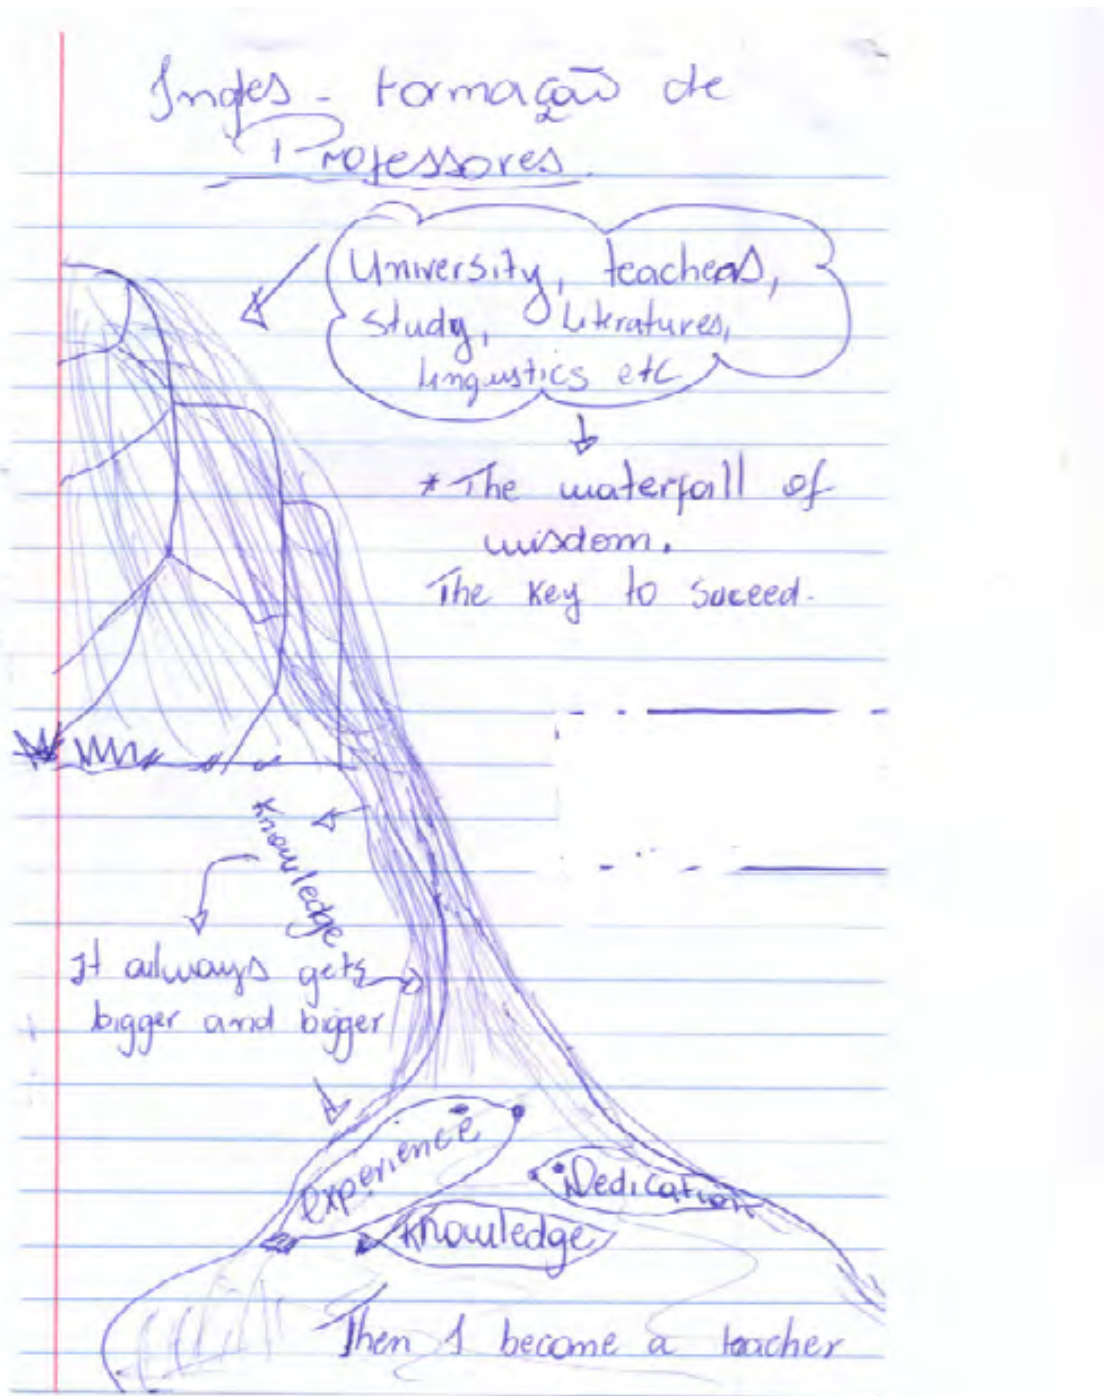 Ingles - Formação de
Professores.
University, teachers,
study, Literatures,
linguistics etc
* The waterfall of
wisdom.
The key to suceed.
Knowledge
It always gets
bigger and bigger
experience
Dedication
Knowledge
Then I become a teacher